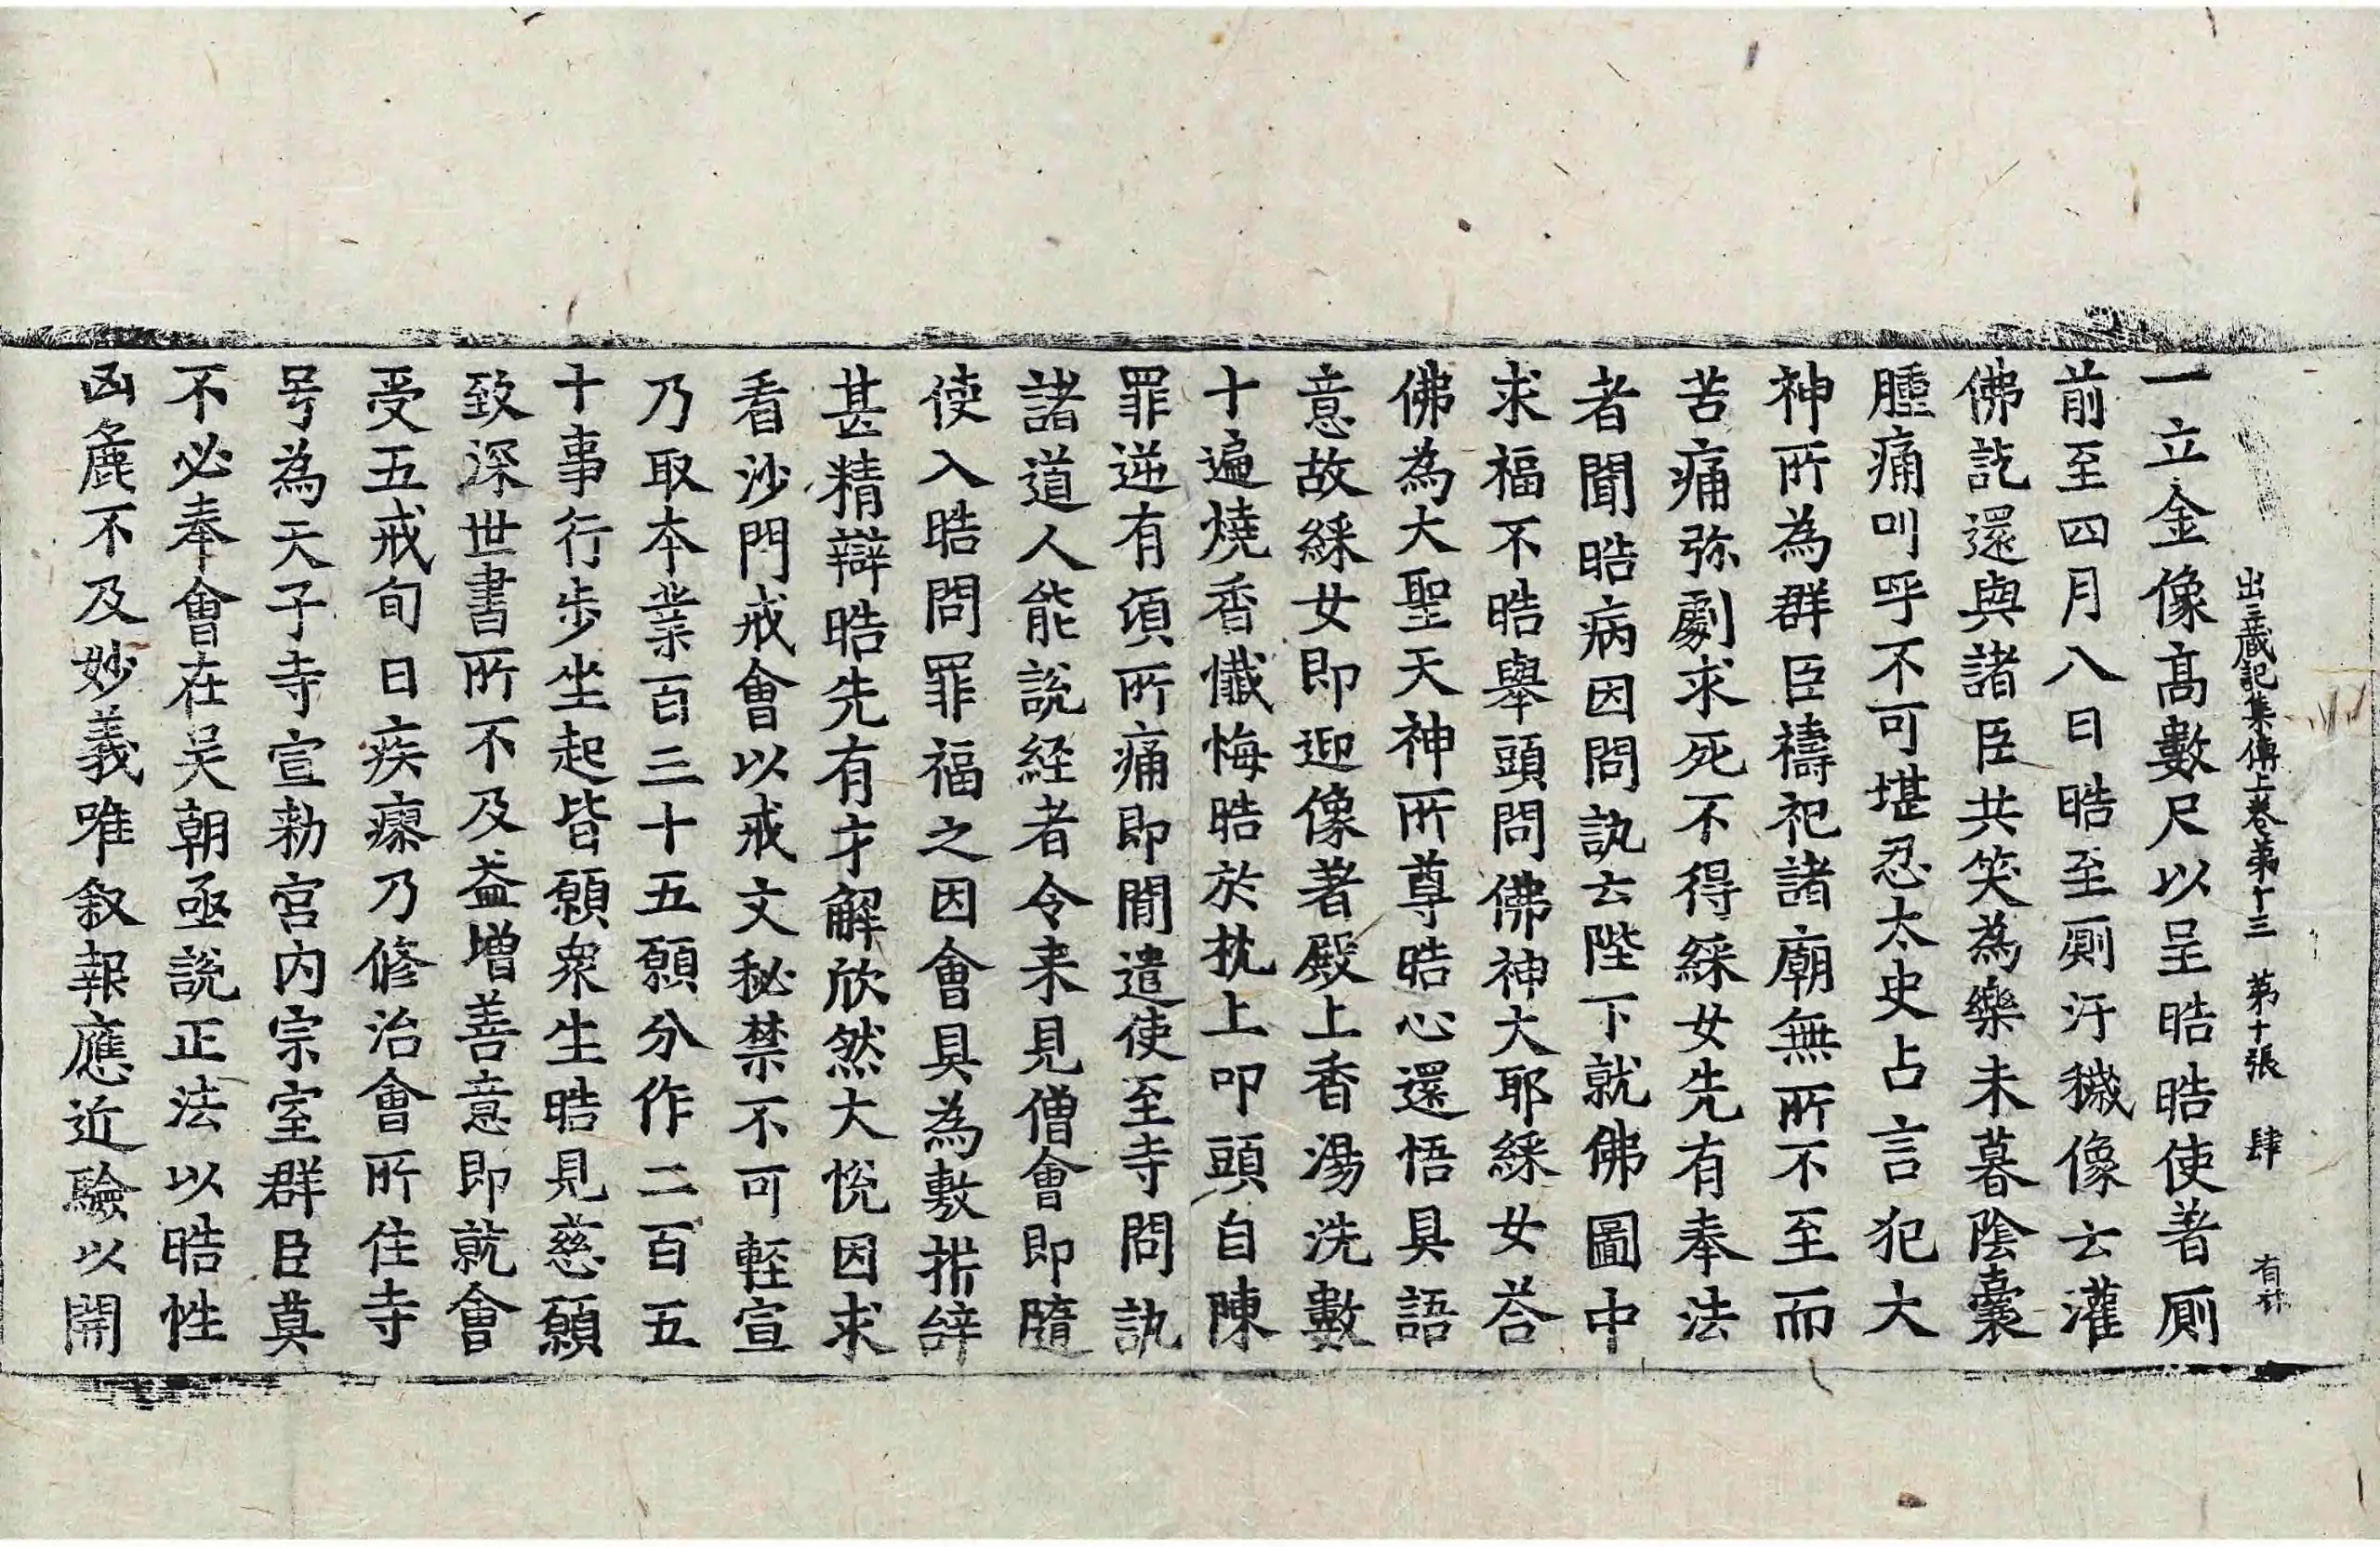 出三藏記集傳上卷第十三　第十張　肆　有
一立金像高數尺以呈晧晧使著厠
前至四月八日晧至厠汙穢像云灌
佛訖還與諸臣共笑為樂未暮陰囊
腫痛叫呼不可堪忍太史占言犯大
神所為群臣禱祀諸廟無所不至而
苦痛弥劇求死不得婇女先有奉法
者聞晧病因問訊云陛下就佛圖中
求福不晧舉頭問佛神大耶婇女荅
佛為大聖天神所尊晧心還悟具語
意故婇女即迎像著殿上香湯洗數
十遍燒香懺悔晧於枕上叩頭自陳
罪逆有頃所痛即間遣使至寺問訊
諸道人能說経者令来見僧會即隨
使入晧問罪福之因會具為敷析辝
甚精辯晧先有才解欣然大悅因求
看沙門戒會以戒文秘禁不可輕宣
乃取本業百三十五願分作二百五
十事行步坐起皆願衆生晧見慈願
致深世書所不及益增善意即就會
受五戒旬日疾瘳乃修治會所住寺
号為天子寺宣勑宮内宗室群臣莫
不必奉會在吴朝亟說正法以晧性
凶麁不及妙義唯叙報應近驗以開